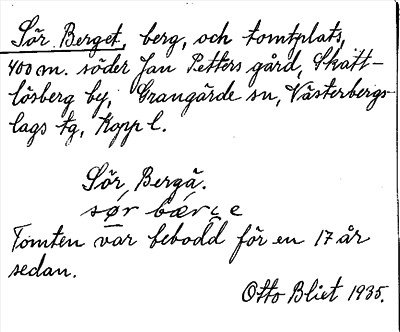 Sör Berget, berg, och tomtplats,
400 m. söder Jan Petters gård, Skatt-
lösberg by, Grangärde sn, Västerbergs-
lags tg, Kopp l.
Sör, Bergä.
Tomten var bebodd för en 17 år
sedan.
Otto Blixt 1935.